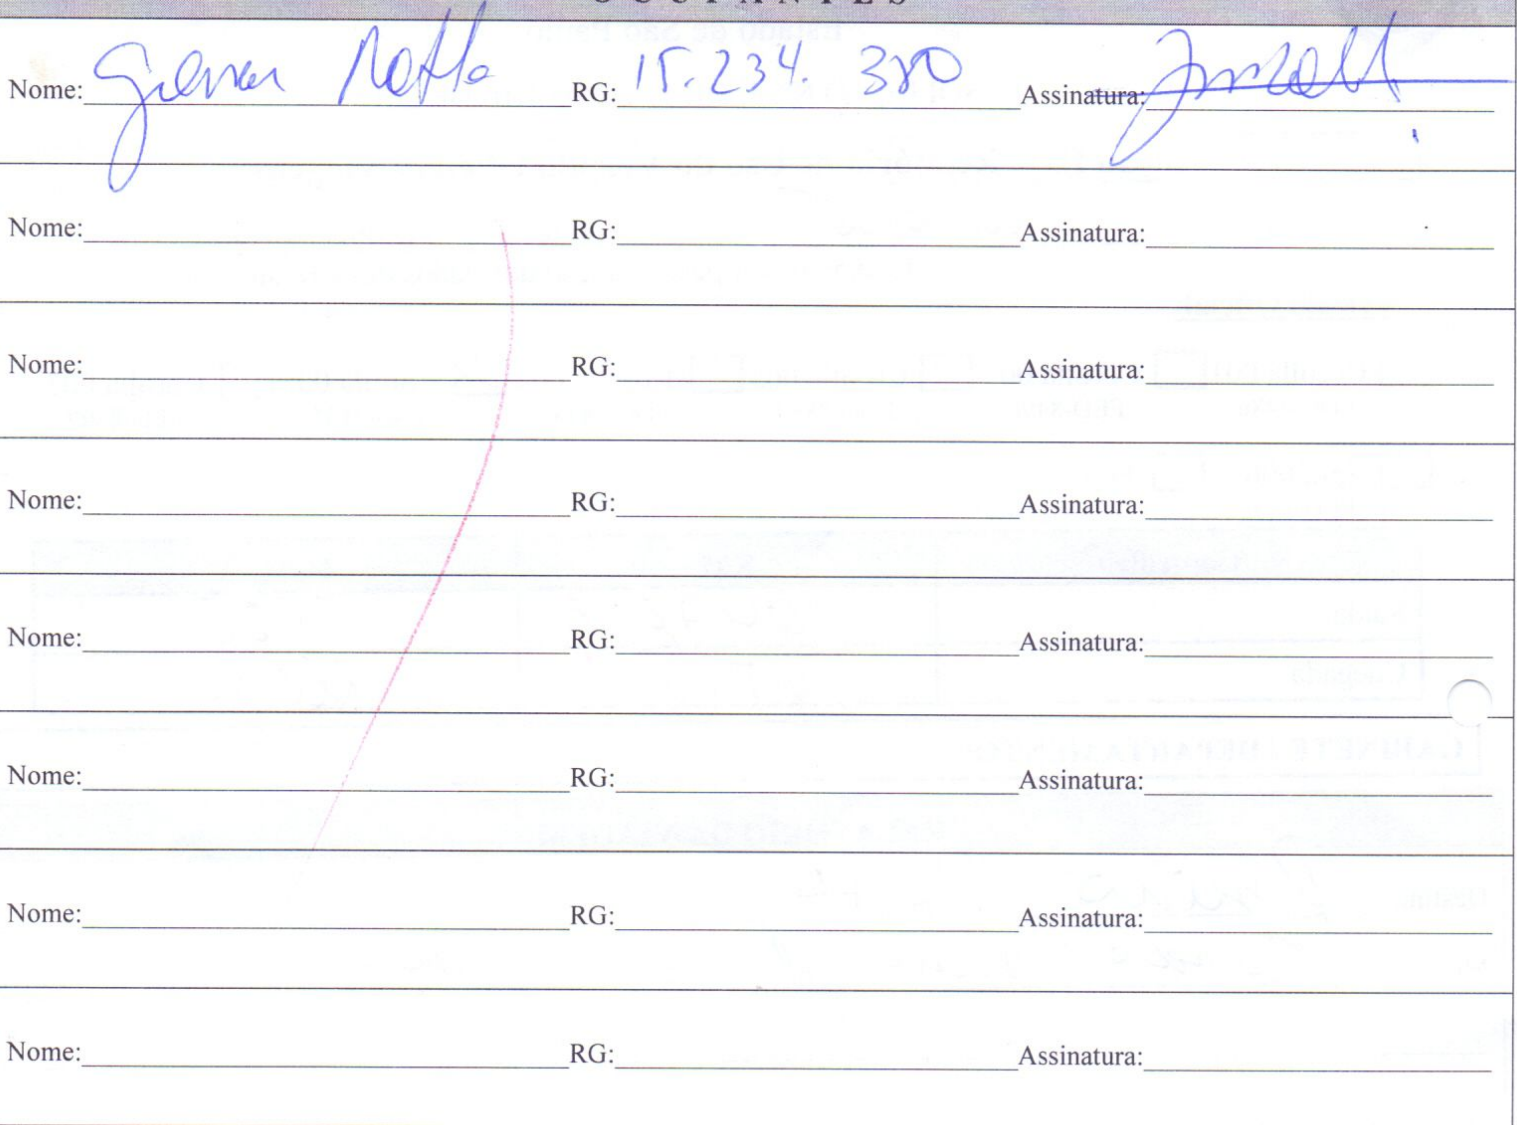 OCUPANTES
Nome: RG: 15.234.380 Assinatura:
Nome: RG: Assinatura:
Nome: RG: Assinatura:
Nome: RG: Assinatura:
Nome: RG: Assinatura:
Nome: RG: Assinatura:
Nome: RG: Assinatura:
Nome: RG: Assinatura: